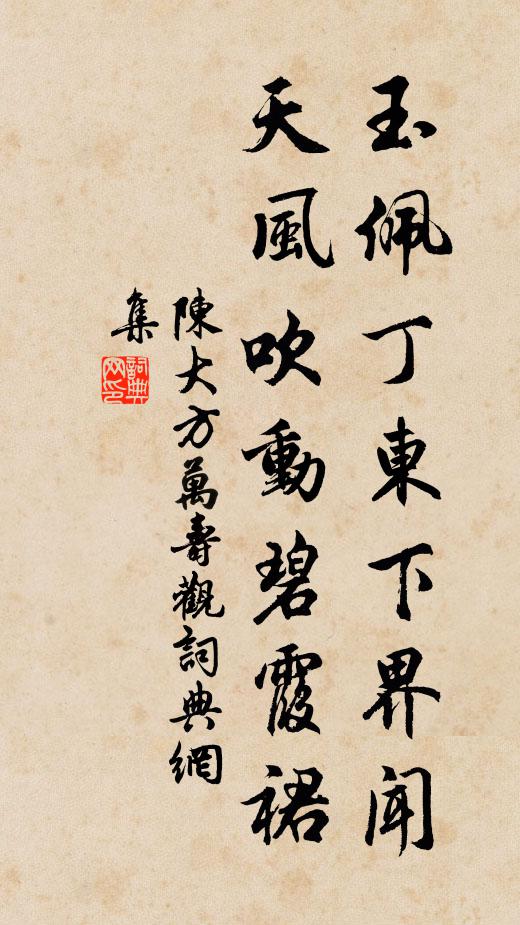 玉佩丁東下界聞
天風吹動碧霞裙
陳大方萬壽觀詞典網
集
詞典网印